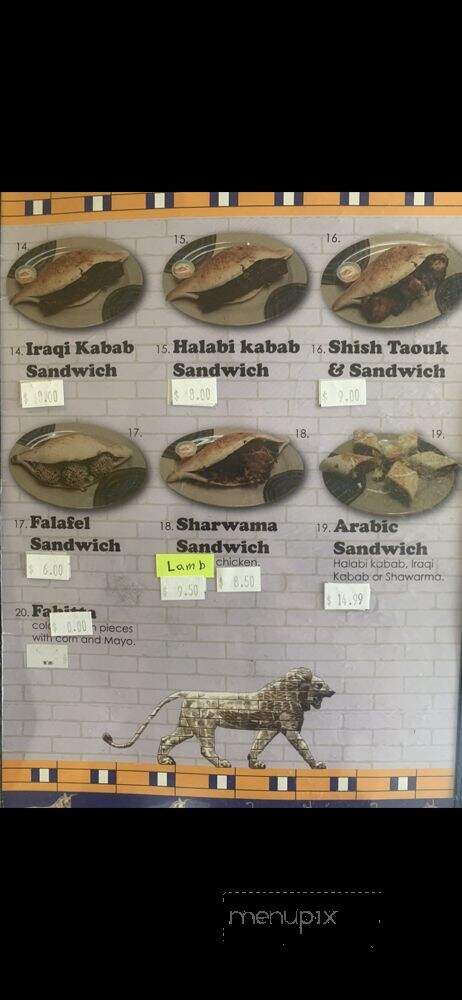 14.
15.
16.
14. Iraqi Kabab
Sandwich
15. Halabi kabab
Sandwich
16. Shish Taouk
& Sandwich
$ 8.00
$ 8.00
$ 9.00
17.
18.
19.
17. Falafel
Sandwich
18. Sharwama
Sandwich
19. Arabic
Sandwich
Lamb
chicken.
Halabi kabab, Iraqi
Kabab or Shawarma.
$ 6.00
$ 9.50
$ 8.50
$ 14.99
20.
$ 0.00
pieces
with corn and Mayo.
menupix